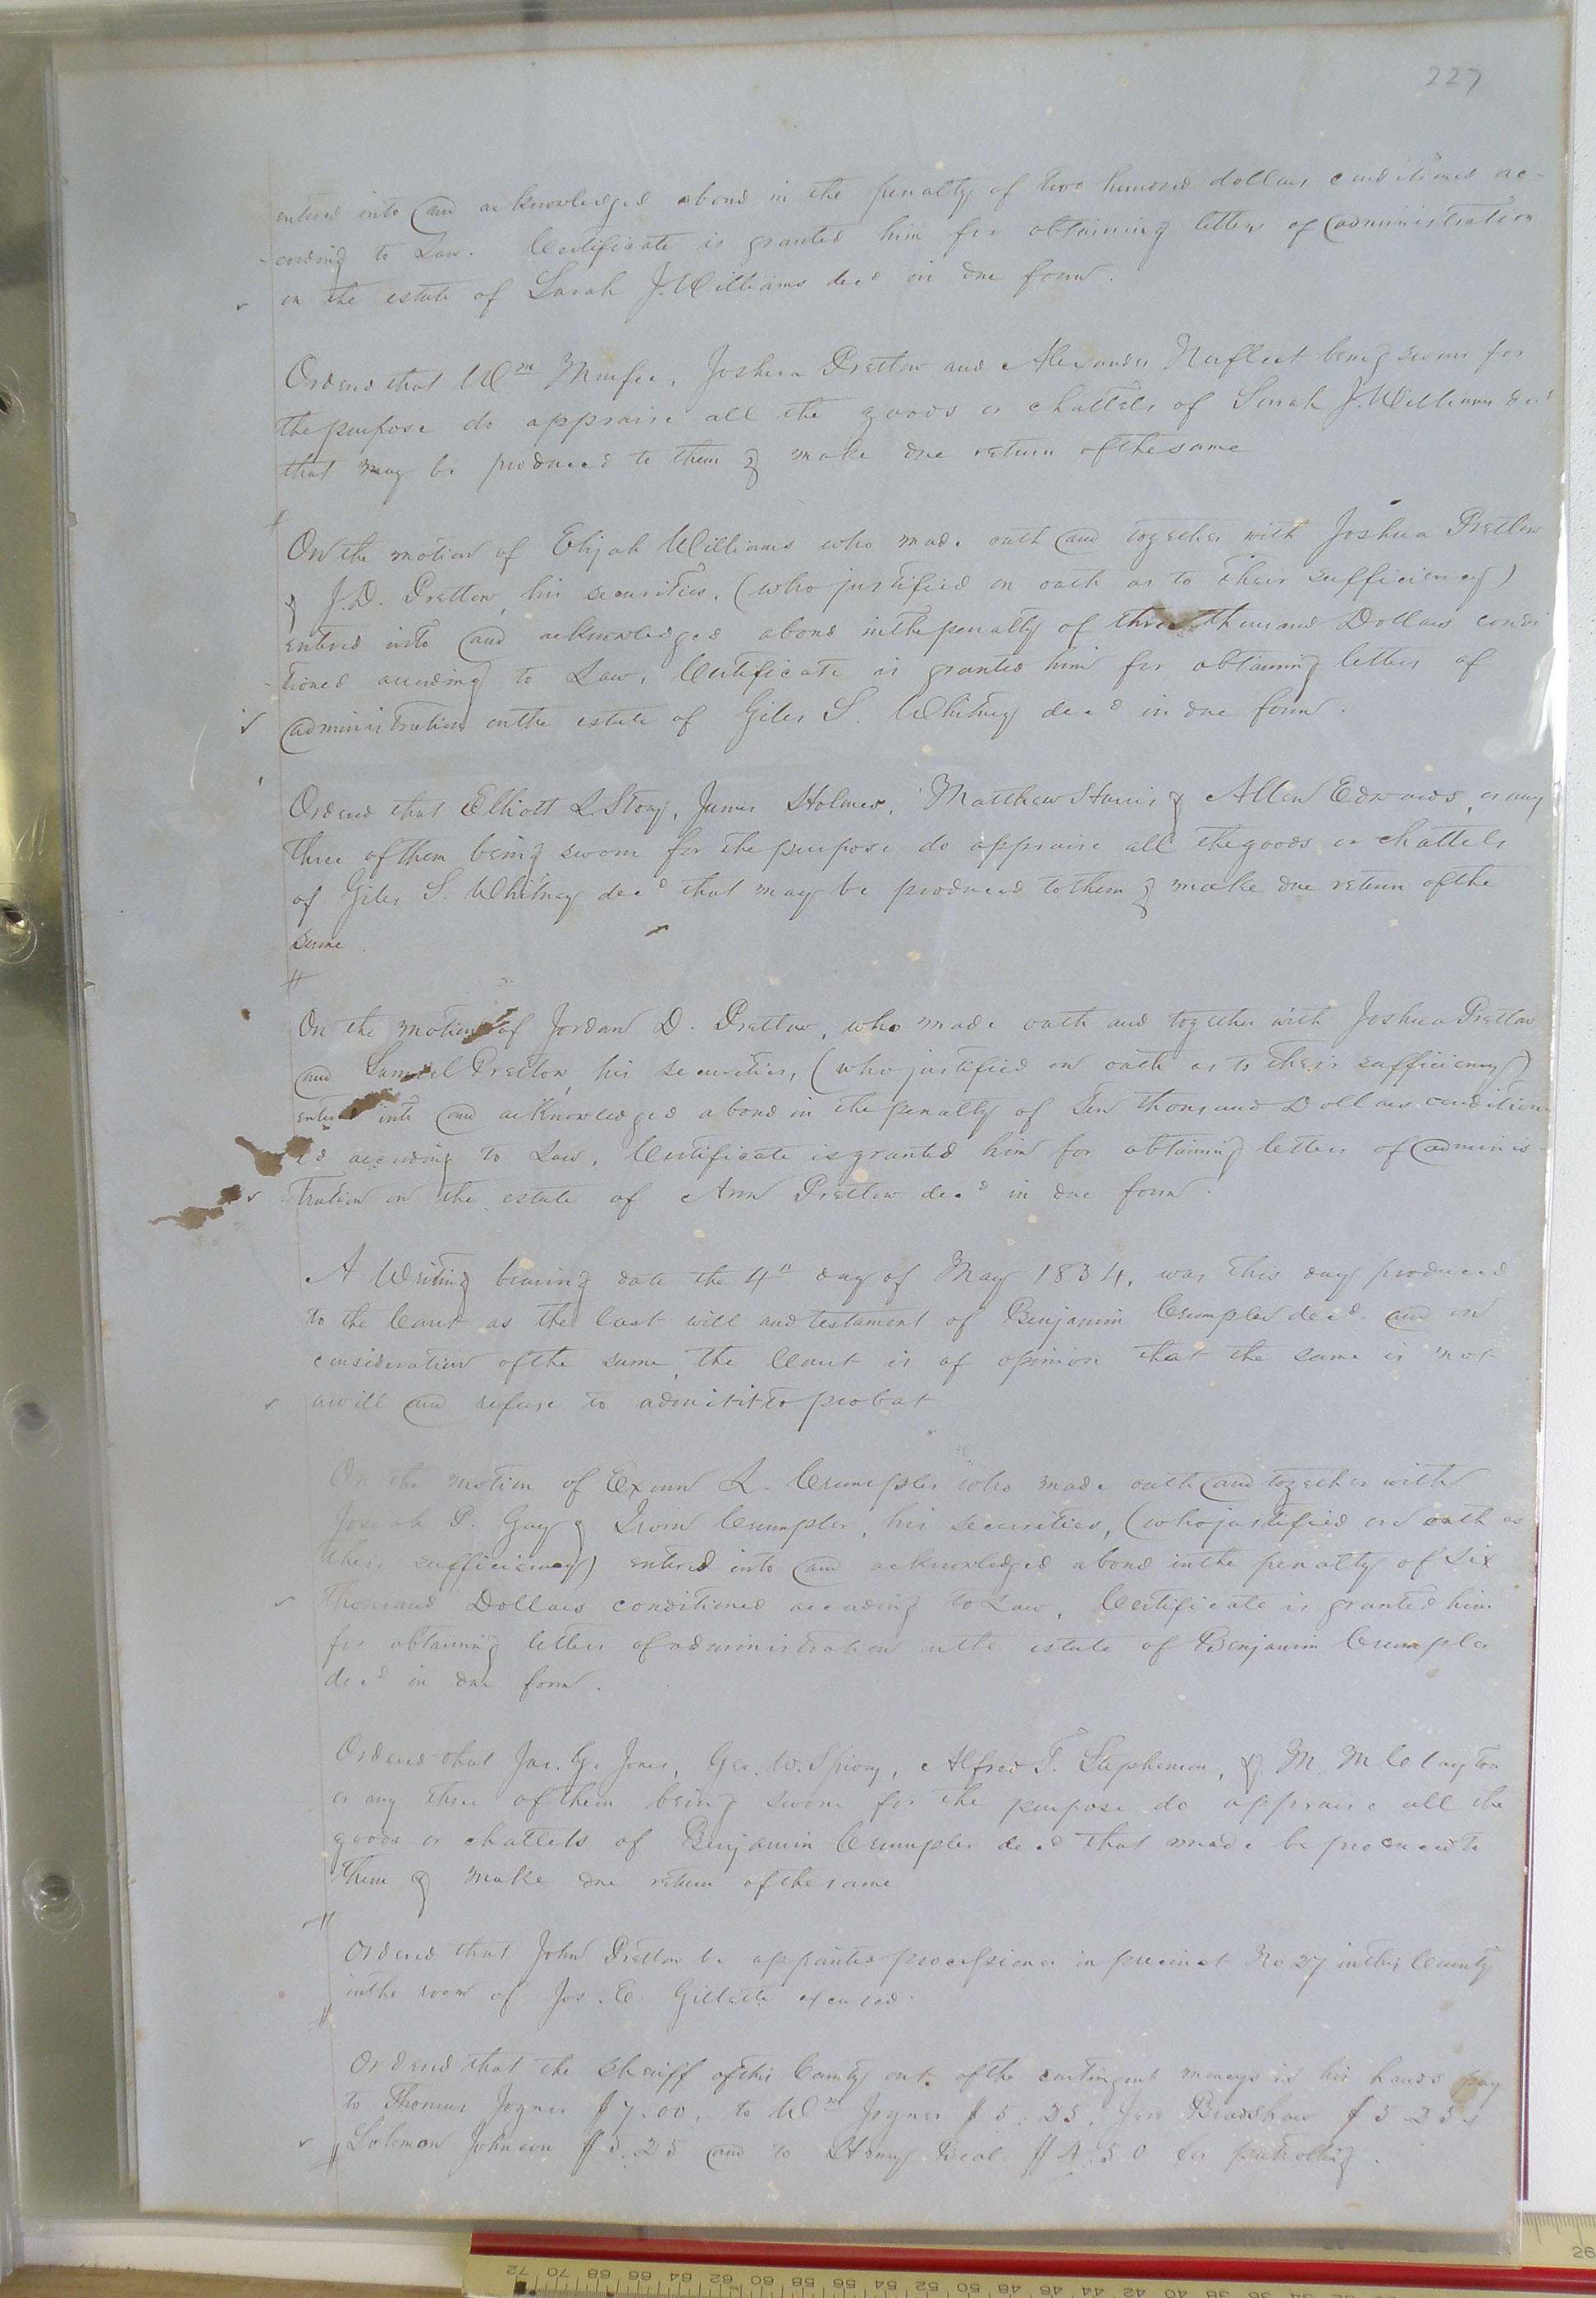 227
entered into and acknowledged a bond in the penalty of two hundred dollars conditioned ac-
cording to Law. Certificate is granted him for obtaining letters of administration
on the estate of Sarah J. Williams decd in due form.
Ordered that Wm Minfee, Joshua Pretlow and Alexander Norfleet being sworn for
the purpose do appraise all the goods or chattels of Sarah J. Williams decd
that may be produced to them & make due return of the same
On the motion of Elijah Williams who made oath and together with Joshua Pretlow
& J.D. Pretlow, his securities, (who justified on oath as to their sufficiency)
entered into and acknowledged a bond in the penalty of three thousand Dollars condi
tioned according to Law, Certificate is granted him for obtaining letters of
administration on the estate of Giles S. Whitney decd in due form.
Ordered that Elliott L. Story, James Holmes, Matthew Harris & Allen Edwards, or any
three of them being sworn for the purpose do appraise all the goods or chattels
of Giles S. Whitney decd that may be produced to them & make due return of the
same.
On the motion of Jordan D. Pretlow, who made oath and together with Joshua Pretlow
and Samuel Pretlow, his securities, (who justified on oath as to their sufficiency)
entered into and acknowledged a bond in the penalty of Ten thousand Dollars condition-
ed according to Law, Certificate is granted him for obtaining letters of adminis-
tration on the estate of Ann Pretlow decd in due form.
A Writing bearing date the 4th day of May 1834, was this day produced
to the Court as the last will and testament of Benjamin Crumpler decd. and on
consideration of the same, the Court is of opinion that the same is not
a will and refuse to admit it to probat
On the motion of Exum L. Crumpler who made oath and together with
Josiah P. Gay & Irvin Crumpler, his securities, (who justified on oath as
their sufficiency) entered into and acknowledged a bond in the penalty of six
thousand Dollars conditioned according to Law, Certificate is granted him
for obtaining letters of administration on the estate of Benjamin Crumpler
decd in due form.
Ordered that Jas. G. Jones, Geo. W. Spivey, Alfred T. Stephenson, & M. M Clayton
or any three of them being sworn for the purpose do appraise all the
goods or chattels of Benjamin Crumpler decd that made be produced to
them & make due return of the same
Ordered that John Pretlow be appointed processioner in precinct No 27 in this County
in the room of Jos. E. Gillette excused.
Ordered that the Sheriff of this County out of the contingent moneys in his hands pay
to Thomas Joyner $7.00, to Wm Joyner $5.25. Jess Bradshaw $5.25 &
Solomon Johnson $5.25 and to Henry Beal $4.50 for patrolling.
72 70 68 66 64 62 60 58 56 54 52 50 48 46 44 42 40 38 36 34 32
26